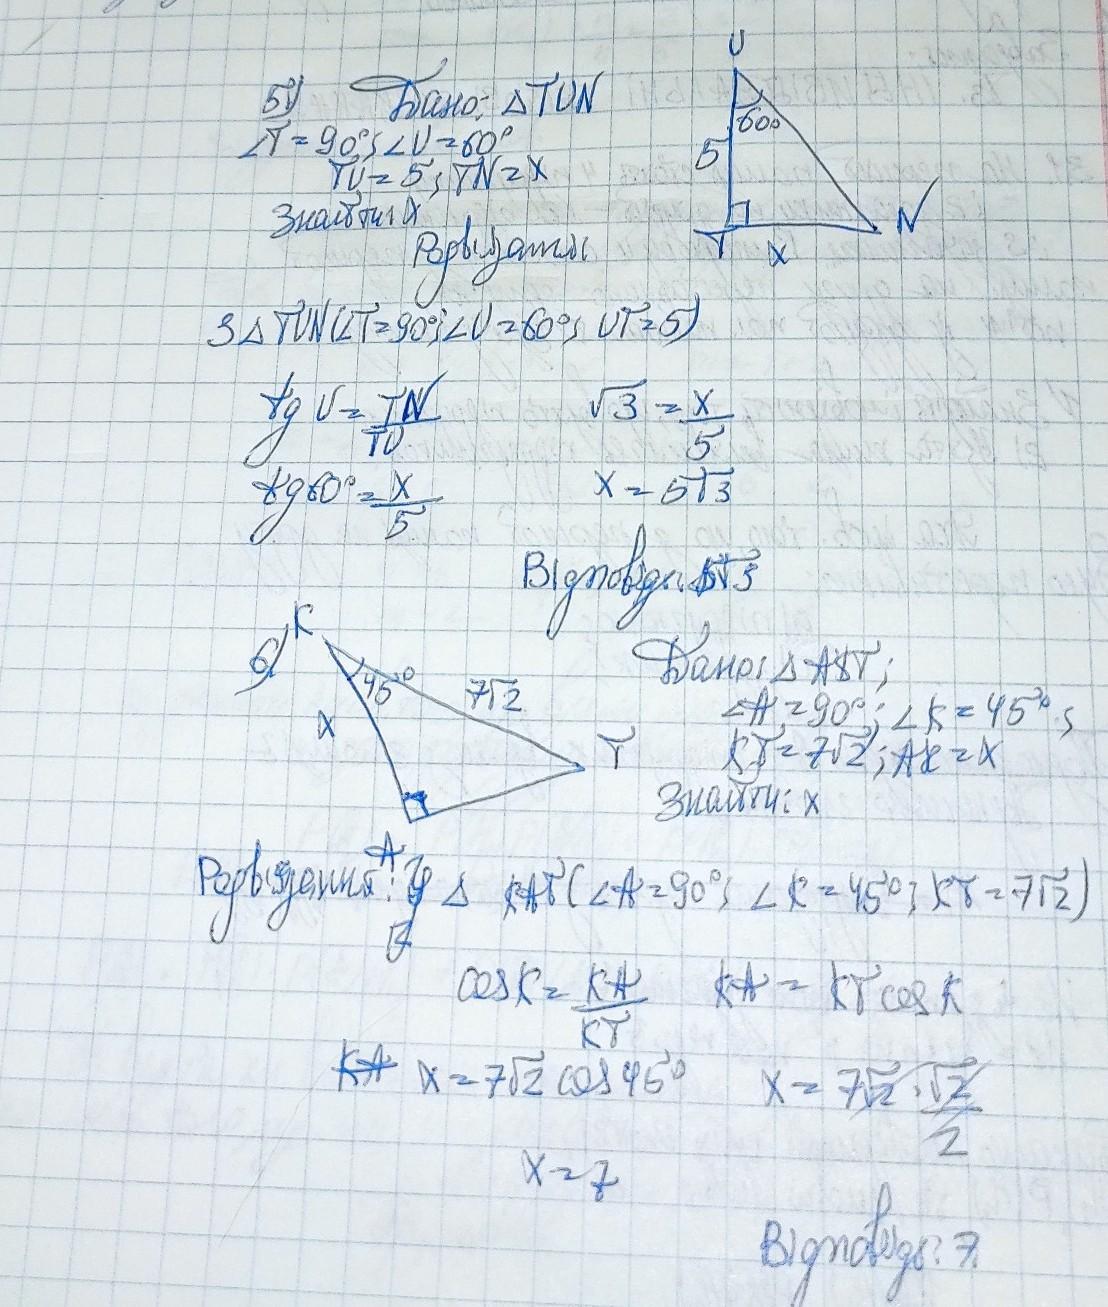 5) Дано: △TUN
∠T=90°; ∠U=60°
TU=5; TN=x
Знайти: x
Розв'язання
U
60°
5
T
x
N
З △TUN(∠T=90°; ∠U=60°; UT=5)
tg U = TN/TU
√3 = x/5
tg60° = x/5
x = 5√3
Відповідь: 5√3
6)
K
45°
7√2
x
T
A
Дано: △AKT;
∠A=90°; ∠K=45°;
KT=7√2; AK=x
Знайти: x
Розв'язання: У △ KAT(∠A=90°; ∠K=45°; KT=7√2)
cosK = KA/KT
KA = KT cosK
KA x=7√2 cos45°
x=7√2·√2/2
x=7
Відповідь: 7.